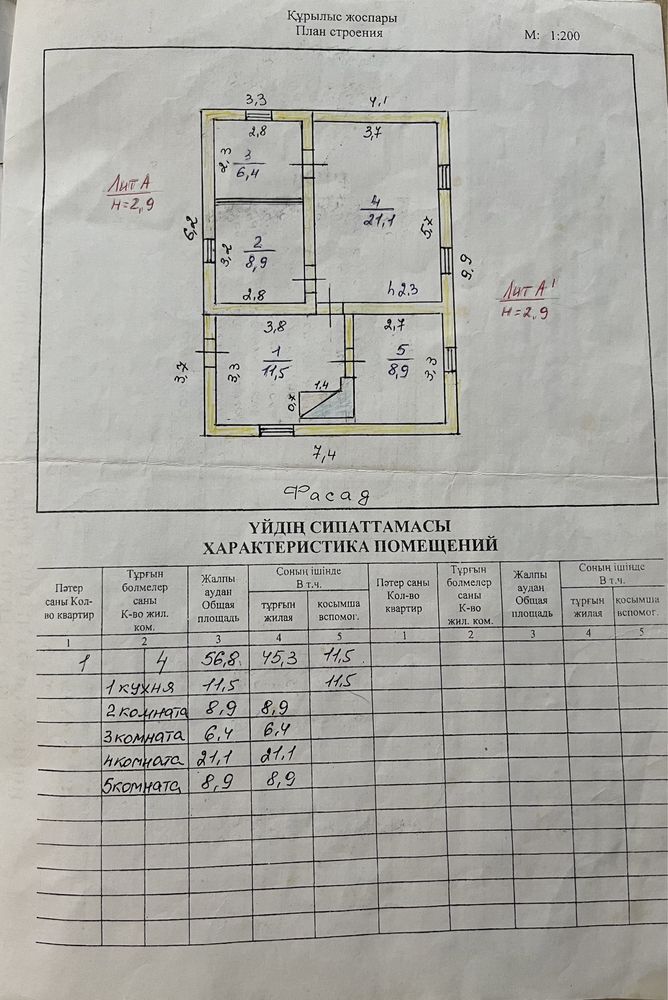 Құрылыс жоспары
План строения
М: 1:200
3.3
4,1
2,8
3,7
2,3
3
6,4
Лит А
н=2,9
4
21,1
6,2
3,2
2
8,9
5,7
9,9
2,8
h 2.3
Лит А'
н=2,9
3,8
2,7
1
11,5
5
8,9
3,7
3,3
3,3
1,4
0,7
7,4
Фасад
ҮЙДІҢ СИПАТТАМАСЫ
ХАРАКТЕРИСТИКА ПОМЕЩЕНИЙ
Пәтер саны Кол-во квартир | Тұрғын болмелер саны К-во жил. ком. | Жалпы аудан Общая площадь | Соның ішінде В т.ч. | Пәтер саны Кол-во квартир | Тұрғын болмелер саны К-во жил. ком. | Жалпы аудан Общая площадь | Соның ішінде В т.ч.
тұрғын жилая | қосымша вспомог. | тұрғын жилая | қосымша вспомог.
1 2 3 4 5 1 2 3 4 5
1 4 56,8 45,3 11,5
1 кухня 11,5 11,5
2 комната 8,9 8,9
3 комната 6,4 6,4
4 комната 21,1 21,1
5 комната 8,9 8,9